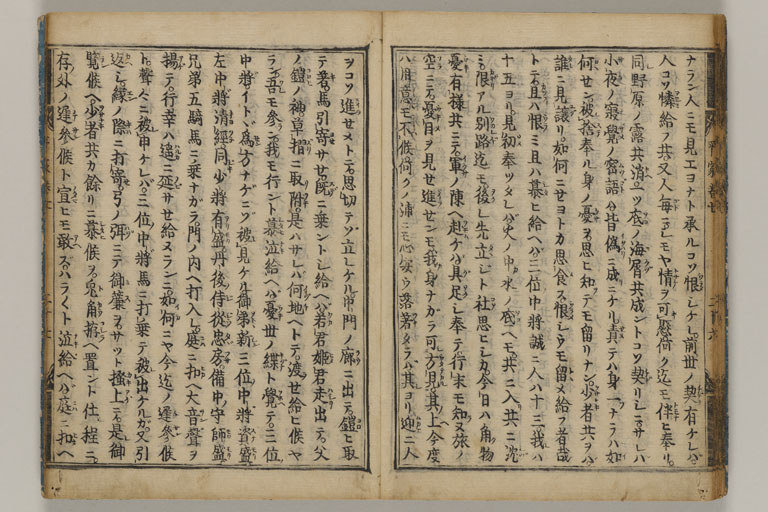 ナラン人ニモ見エヨナト承ルコソ恨シケレ前世ノ契有ケレハ
人コソ憐給フ共又人毎ニシモヤ情ヲ可懸何ク迄モ伴ヒ奉リ
同野原ノ露共消ツ底ノ海屑共成ントコソ契リシニサレハ
小夜ノ寝覚ノ密語ハ皆偽ニ成ニケリ責テハ身一ナラハ如
何セン被捨奉ル身ノ憂ヲ思ヒ知テモ留リナン少者共ヲハ
誰ニ見譲リ如何ニセヨトカ思食ス恨シウモ留メ給フ者哉
トテ且ハ恨ミ且ハ慕ヒ給ヘハ三位中将誠ニ人ハ十三我ハ
十五ヨリ見初奉ツタレハ火ノ中水ノ底ヘモ共ニ入共ニ沈
ミ限アル別路迄モ後レ先立シト社思ヒシカ今日ハ角物
憂有様共ニテ軍ノ陳ヘ赴ケハ具足シ奉テ行末モ知ヌ旅ノ
空ニテ憂目ヲ見セ進セン モ我身ナカラ可方見其上今度
ハ用意モ不候何クノ浦ニモ心安ウ落着タラハ其ヨリ迎ニ人
ヲコソ進セメトテ思切テソ立レケル中門ノ廊ニ出テ鎧ヒ取
テ着馬引寄サセ既ニ乗ントシ給ヘハ若君姫君走出テ父
ノ鎧ノ袖草摺ニ取附是ハサレハ何地ヘトテ渡セ給ヒ候ヤ
ラン吾モ参ン我モ行ント慕泣給ヘハ憂世ノ緤ト覚テ三位
中将イトヽ為方ナケニソ被見ケル御弟新三位中将資盛
左中将清経同少将有盛丹後侍従忠房備中守師盛
兄弟五騎馬ニ乗ナカラ門ノ内ヘ打入レ庭ニ扣ヘ大音声ヲ
揚テ行幸ハ遥ニ延サセ給ヌランニ如何ニヤ今迄ノ遅参候
ト声々ニ被申ケレハ三位中将馬ニ打乗テ被出ケルカ又引
返シ縁ノ際ニ打寄弓ノ弭ニテ御簾ヲサット掻上テ是御
覧候ヘ少者共カ余リニ慕候ヲ兎角拵ヘ置ント仕程ニ
存外ノ遅参候ト宣ヒモ敢スハライト泣給ヘハ庭ニ扣ヘ